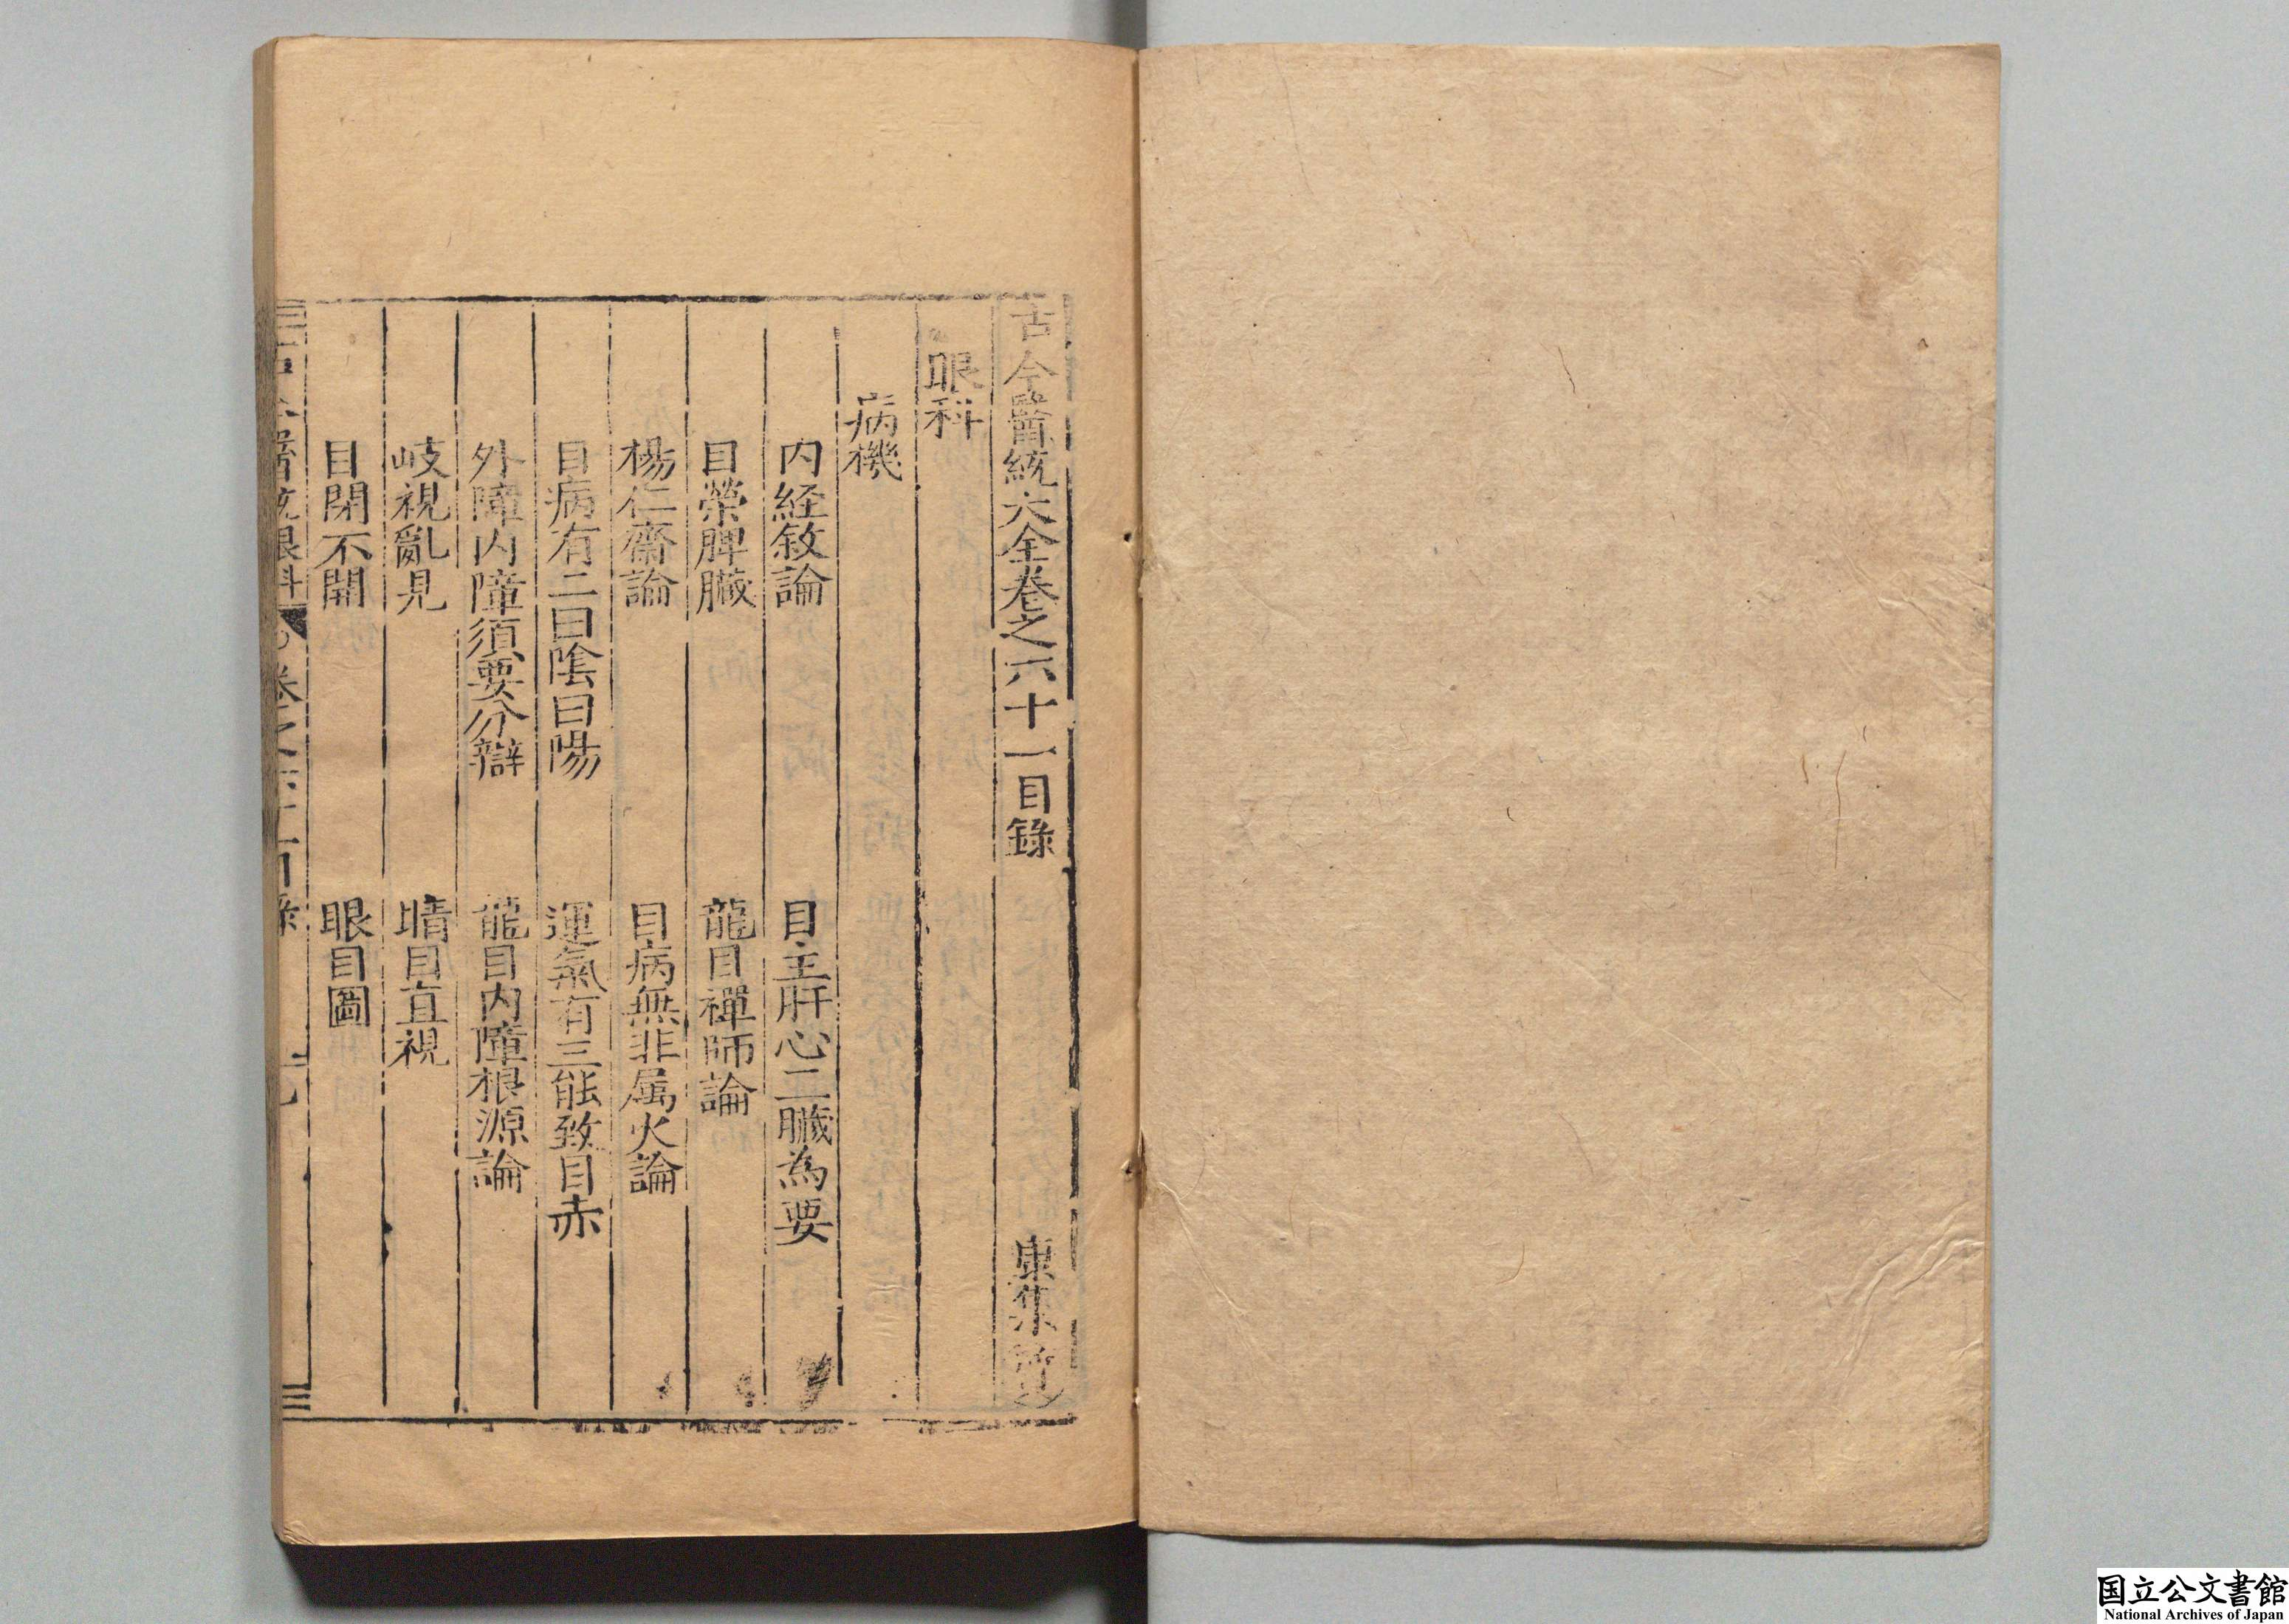 古今醫統大全卷之六十一目錄 康集
眼科
病機
内経敘論 目主肝心二臟為要
目榮脾臟 龍目禪師論
楊仁齋論 目病無非属火論
目病有二曰陰曰陽 運氣有三能致目赤
外障内障須要分辯 龍目内障根源論
岐視亂見 睛目直視
目閉不開 眼目圖
卷之六十一目錄
国立公文書館
National Archives of Japan